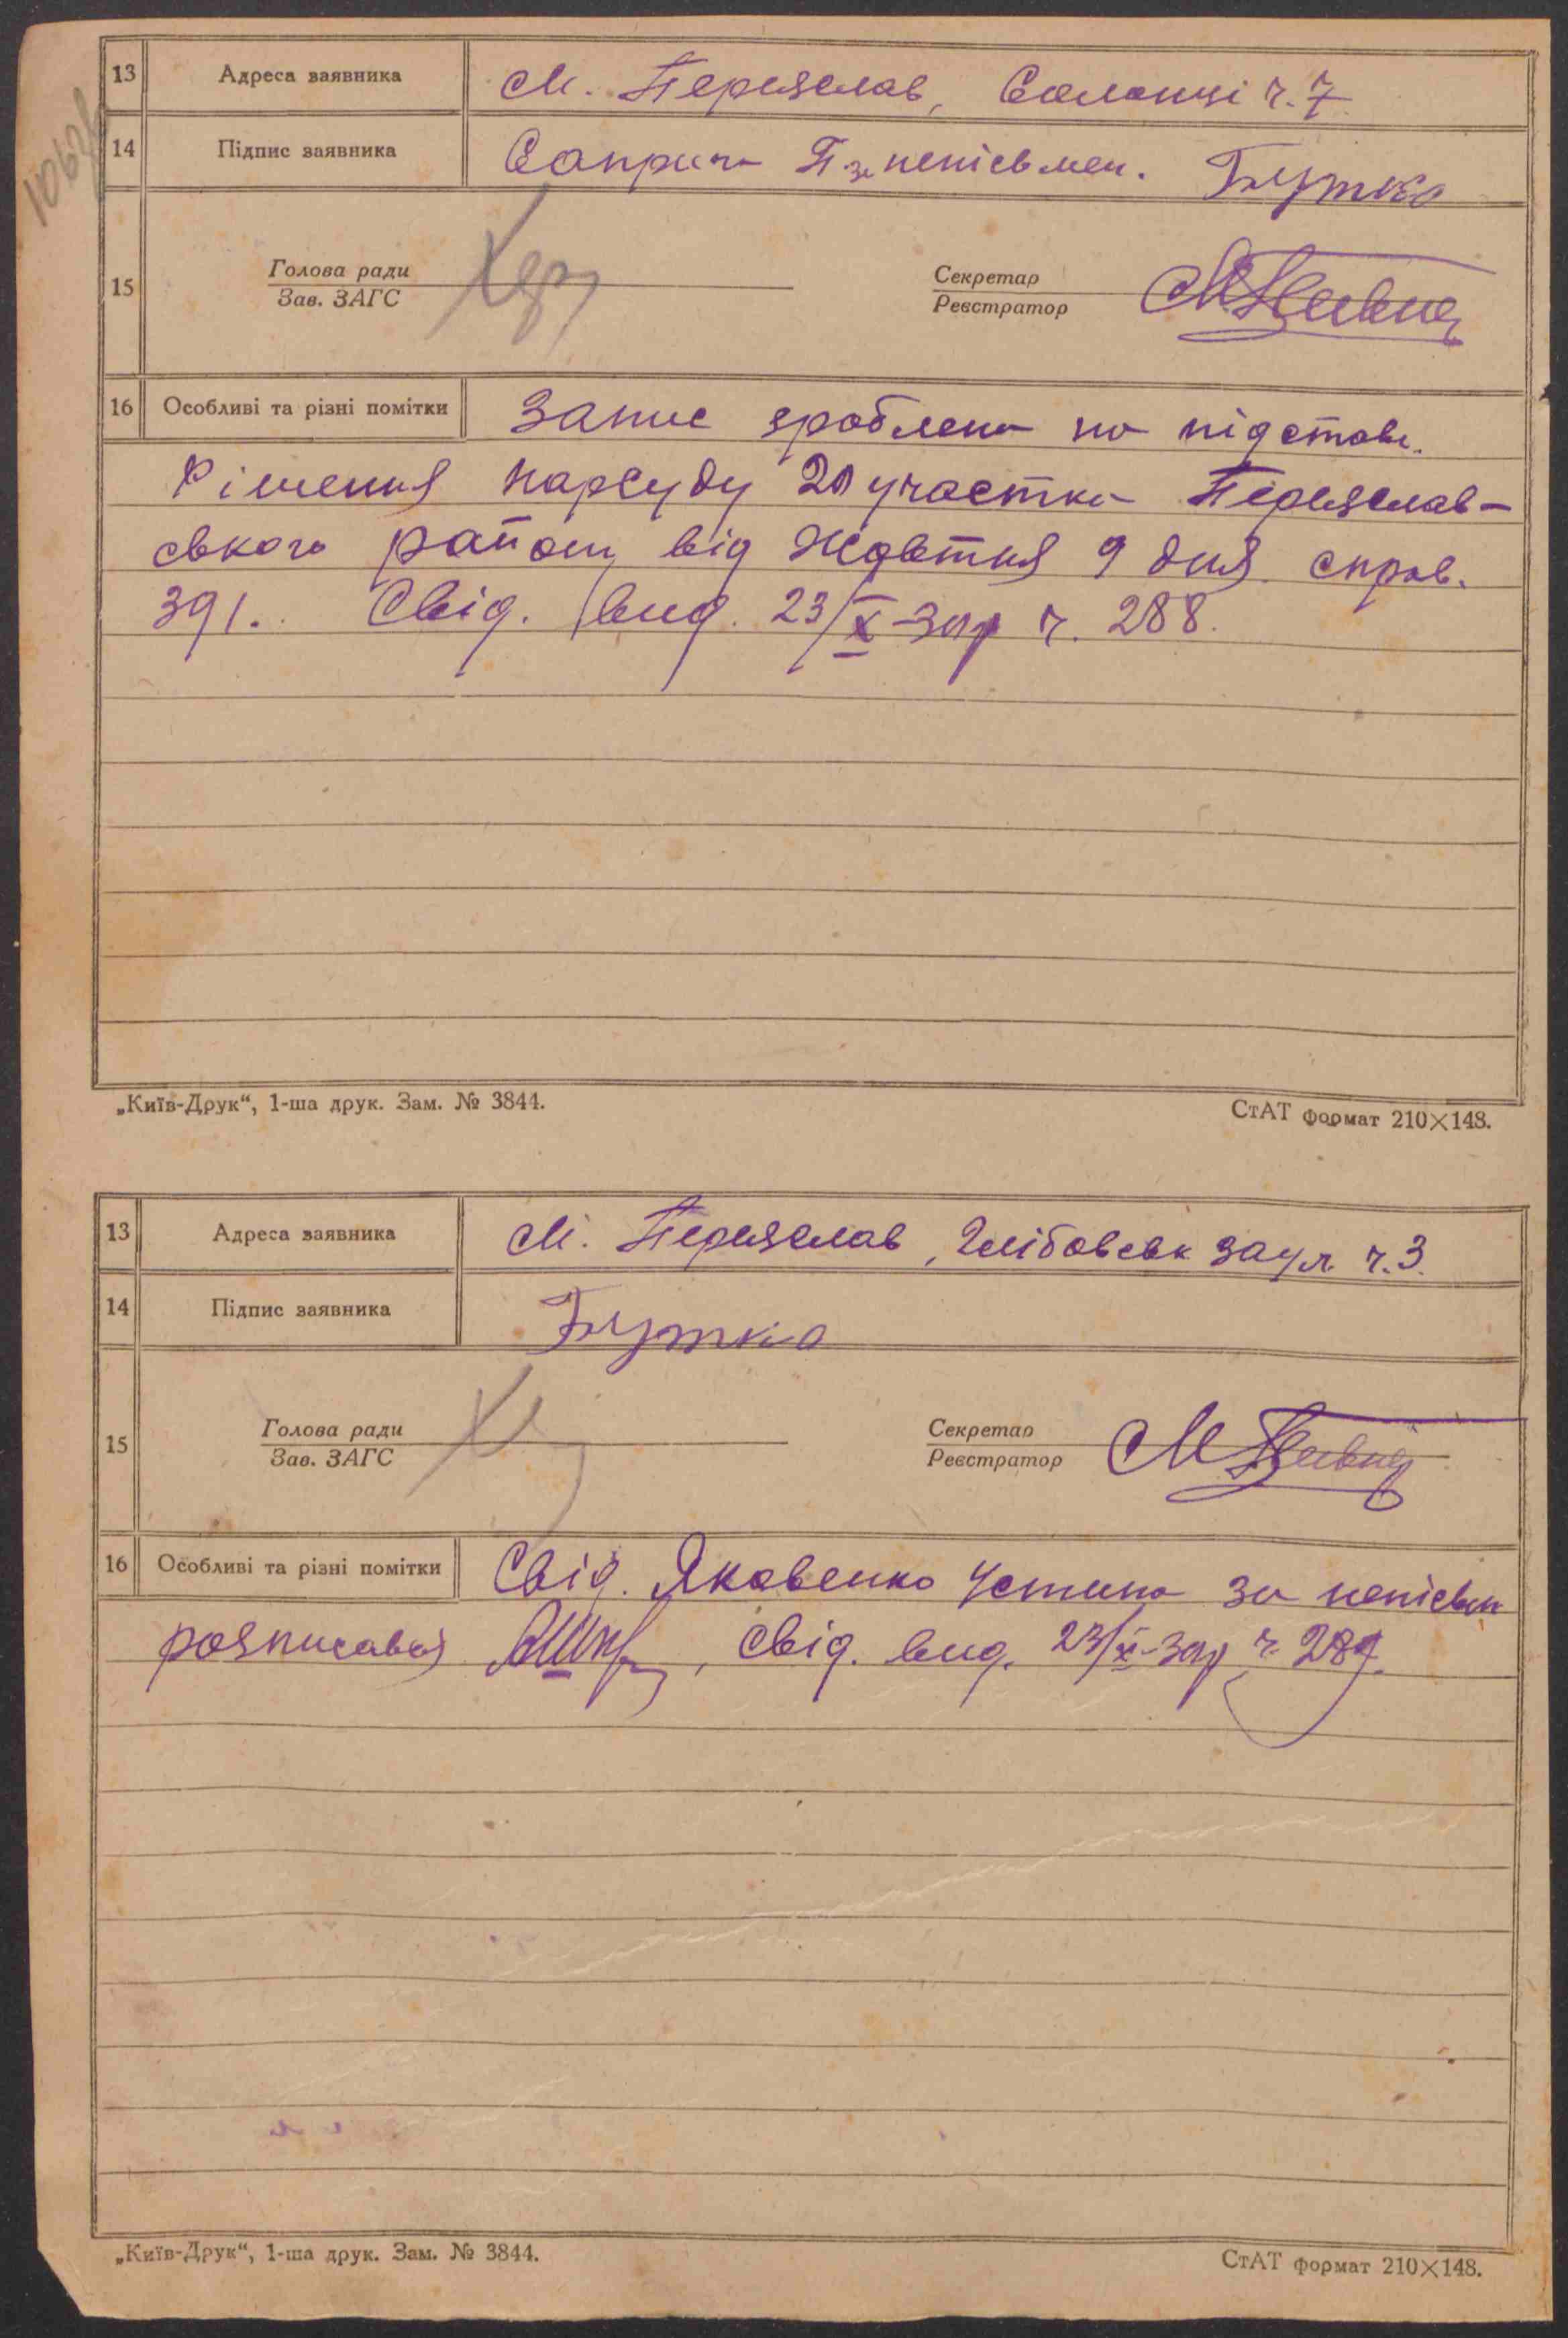 13 Адреса заявника М. Переяслав, Солонці ч. 7
14 Підпис заявника Саприга П за неписьмен. Бутко
Голова ради
Секретар
15
Зав. ЗАГС
Реєстратор
16 Особливі та різні помітки Запис зроблено на підставі
Рішення Нарсуду 2й участка Переяслав-
ського району від Жовтня 9 дня справ.
391. Свід. вид. 23/X-зар ч. 288.
„Київ-Друк“, 1-ша друк. Зам. № 3844. СтАТ формат 210×148.
13 Адреса заявника М. Переяслав, Глібовськ заул ч. 3
14 Підпис заявника Бутко
Голова ради
Секретар
15
Зав. ЗАГС
Реєстратор
16 Особливі та різні помітки Свід. Яковенко Устина за неписьм
розписався , свід. вид. 23/X-зар ч. 289.
„Київ-Друк“, 1-ша друк. Зам. № 3844. СтАТ формат 210×148.